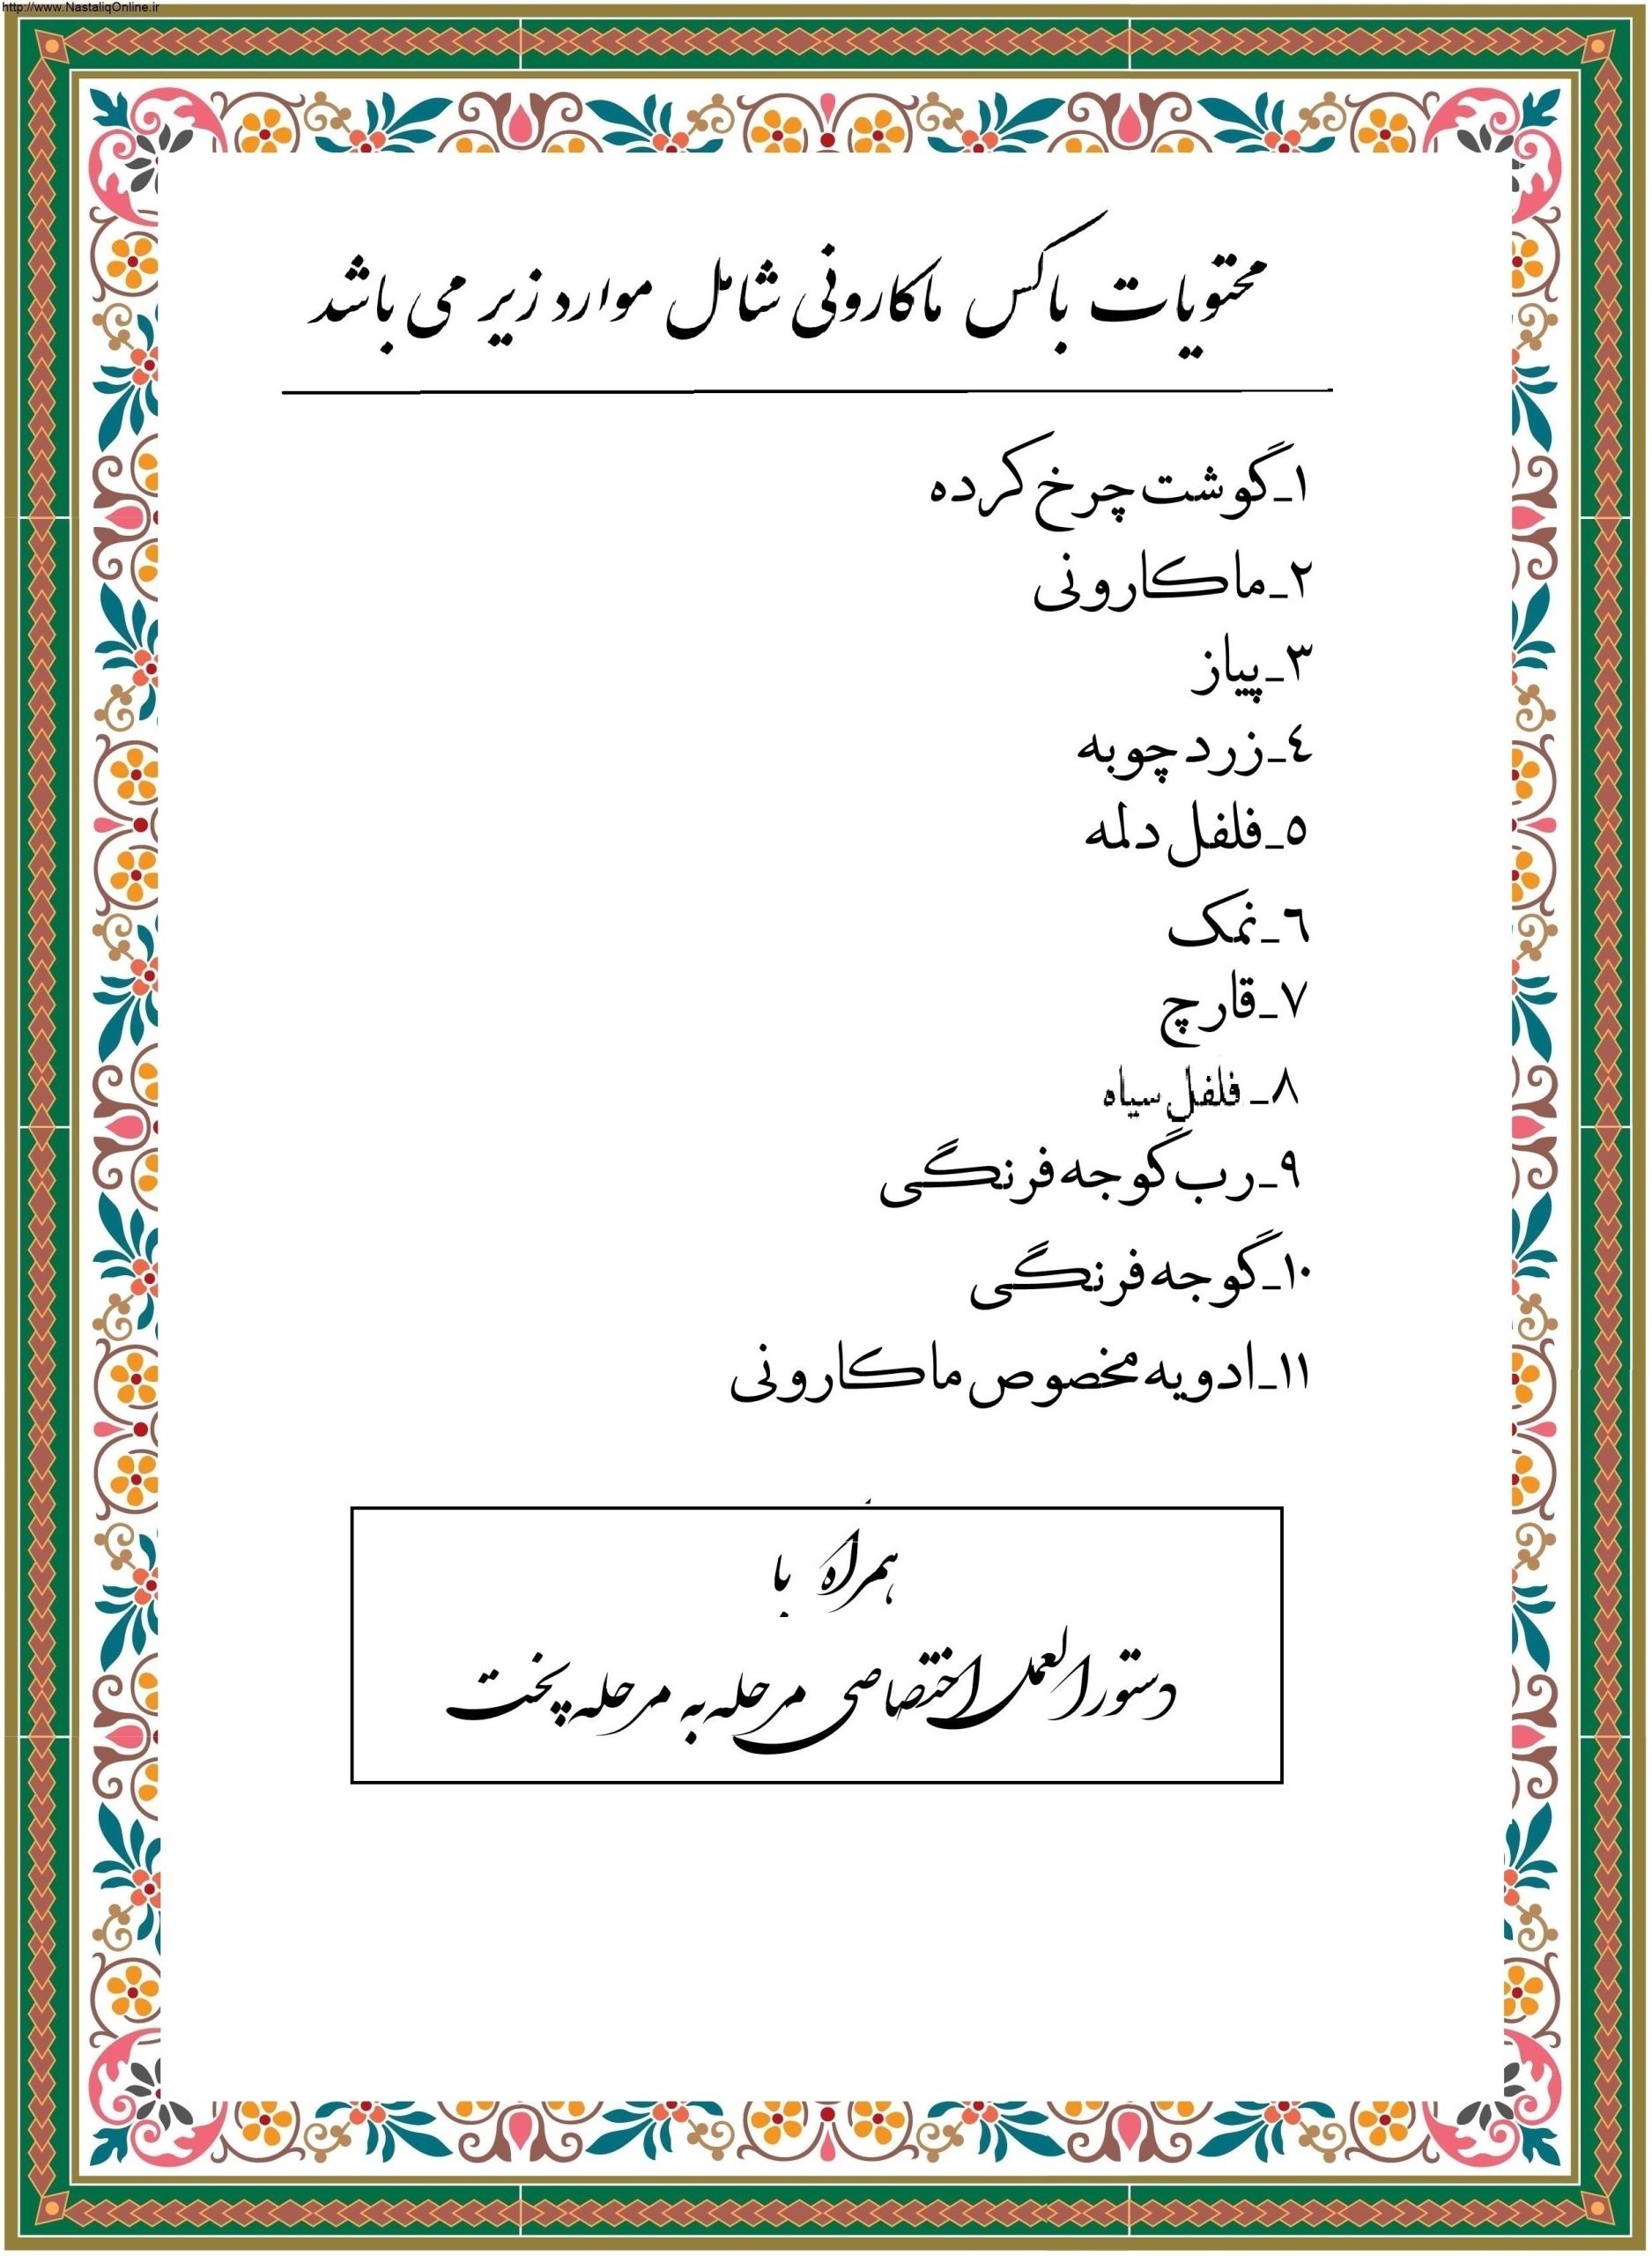 http://www.NastaliqOnline.ir
محتویات باکس ماکارونی شامل موارد زیر می باشد
١_گوشت چرخ کرده
٢_ماکارونی
٣_پیاز
٤_زرد چوبه
٥_فلفل دلمه
٦_نمک
٧_قارچ
٨_ فلفل سیاه
٩_رب گوجه فرنگی
١٠_گوجه فرنگی
١١_ادویه مخصوص ماکارونی
همراه با
دستورالعمل اختصاصی مرحله به مرحله پخت